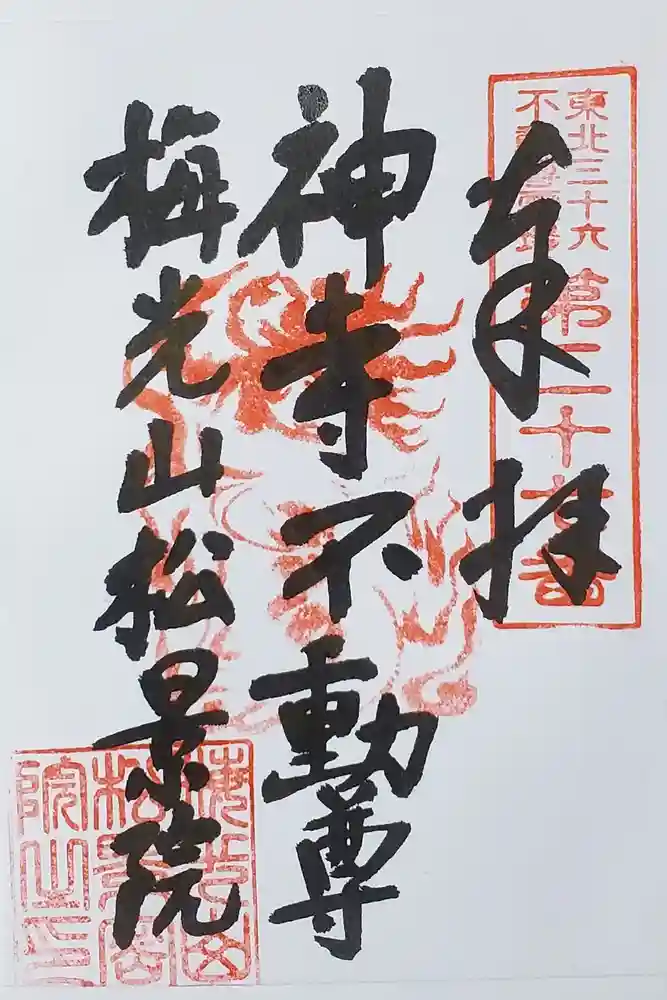 東北三十六
不動尊霊場
第二十七番
奉拝
神寺不動尊
梅光山松景院